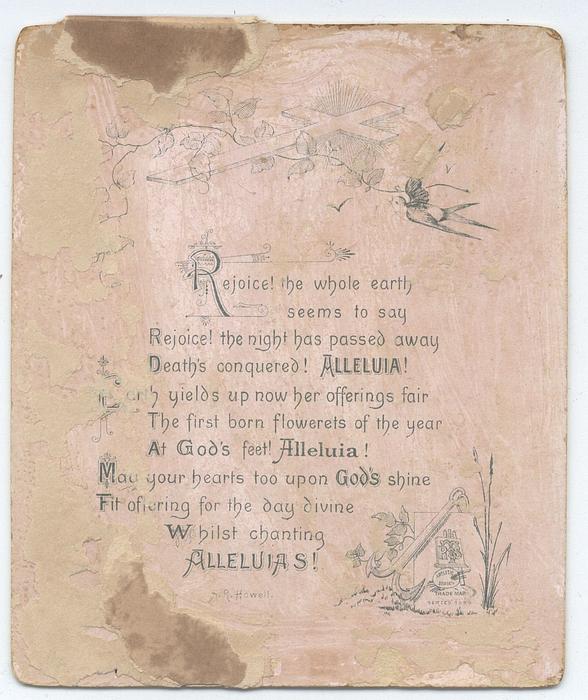 Rejoice! the whole earth
seems to say
Rejoice! the night has passed away
Death's conquered! ALLELUIA!
Earth yields up now her offerings fair
The first born flowerets of the year
At God's feet! Alleluia!
May your hearts too upon God's shine
Fit offering for the day divine
Whilst chanting
ALLELUIAS!
R. Howell.
TRADE MARK